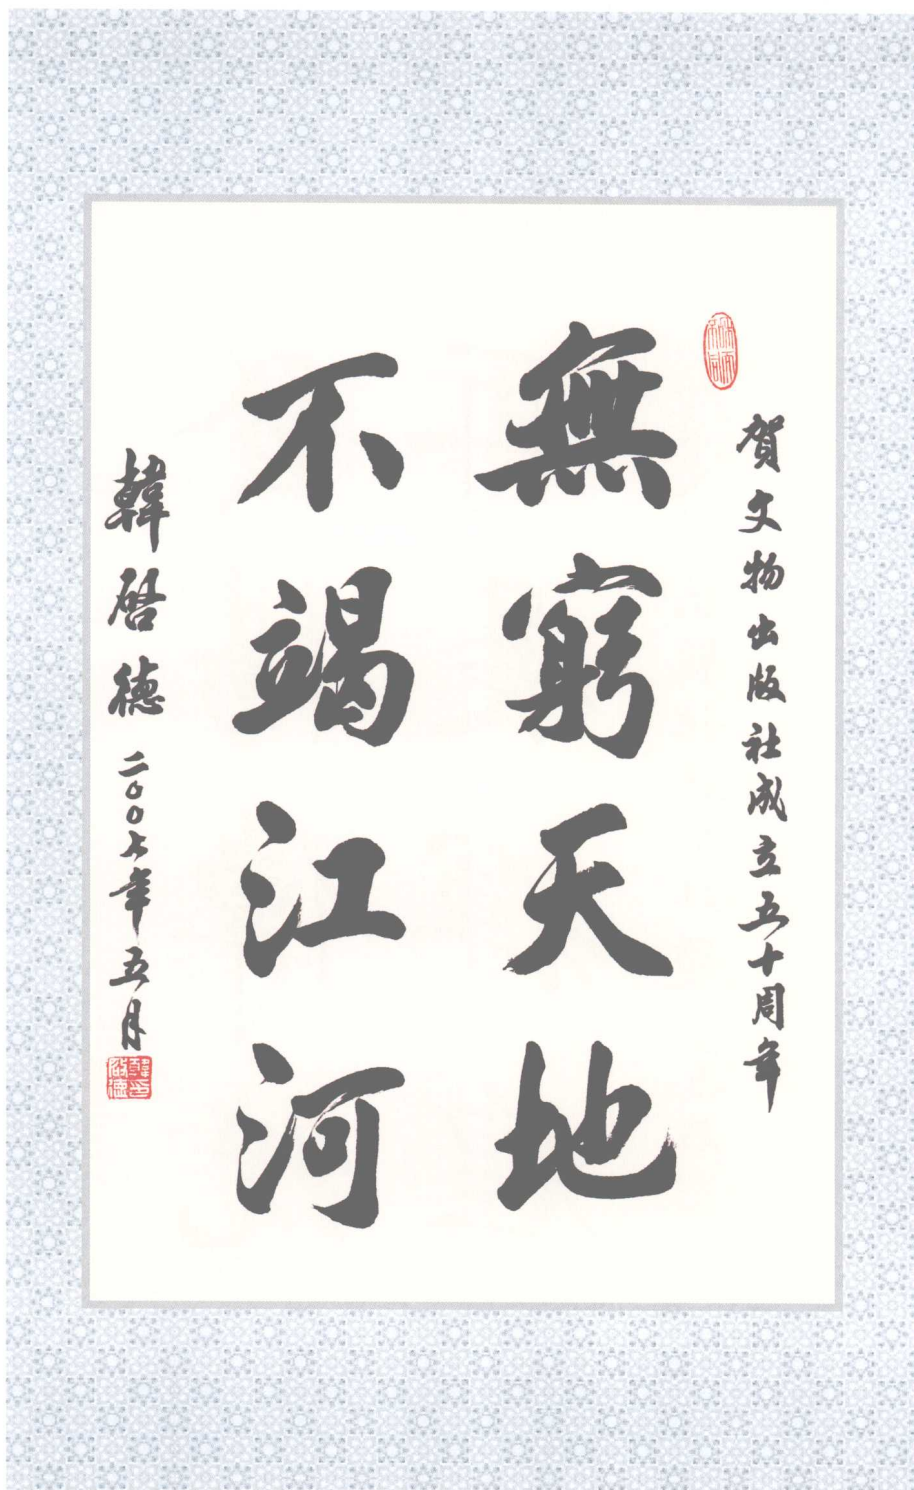 賀文物出版社成立五十周年
無窮天地
不竭江河
韓啓德二〇〇七年五月